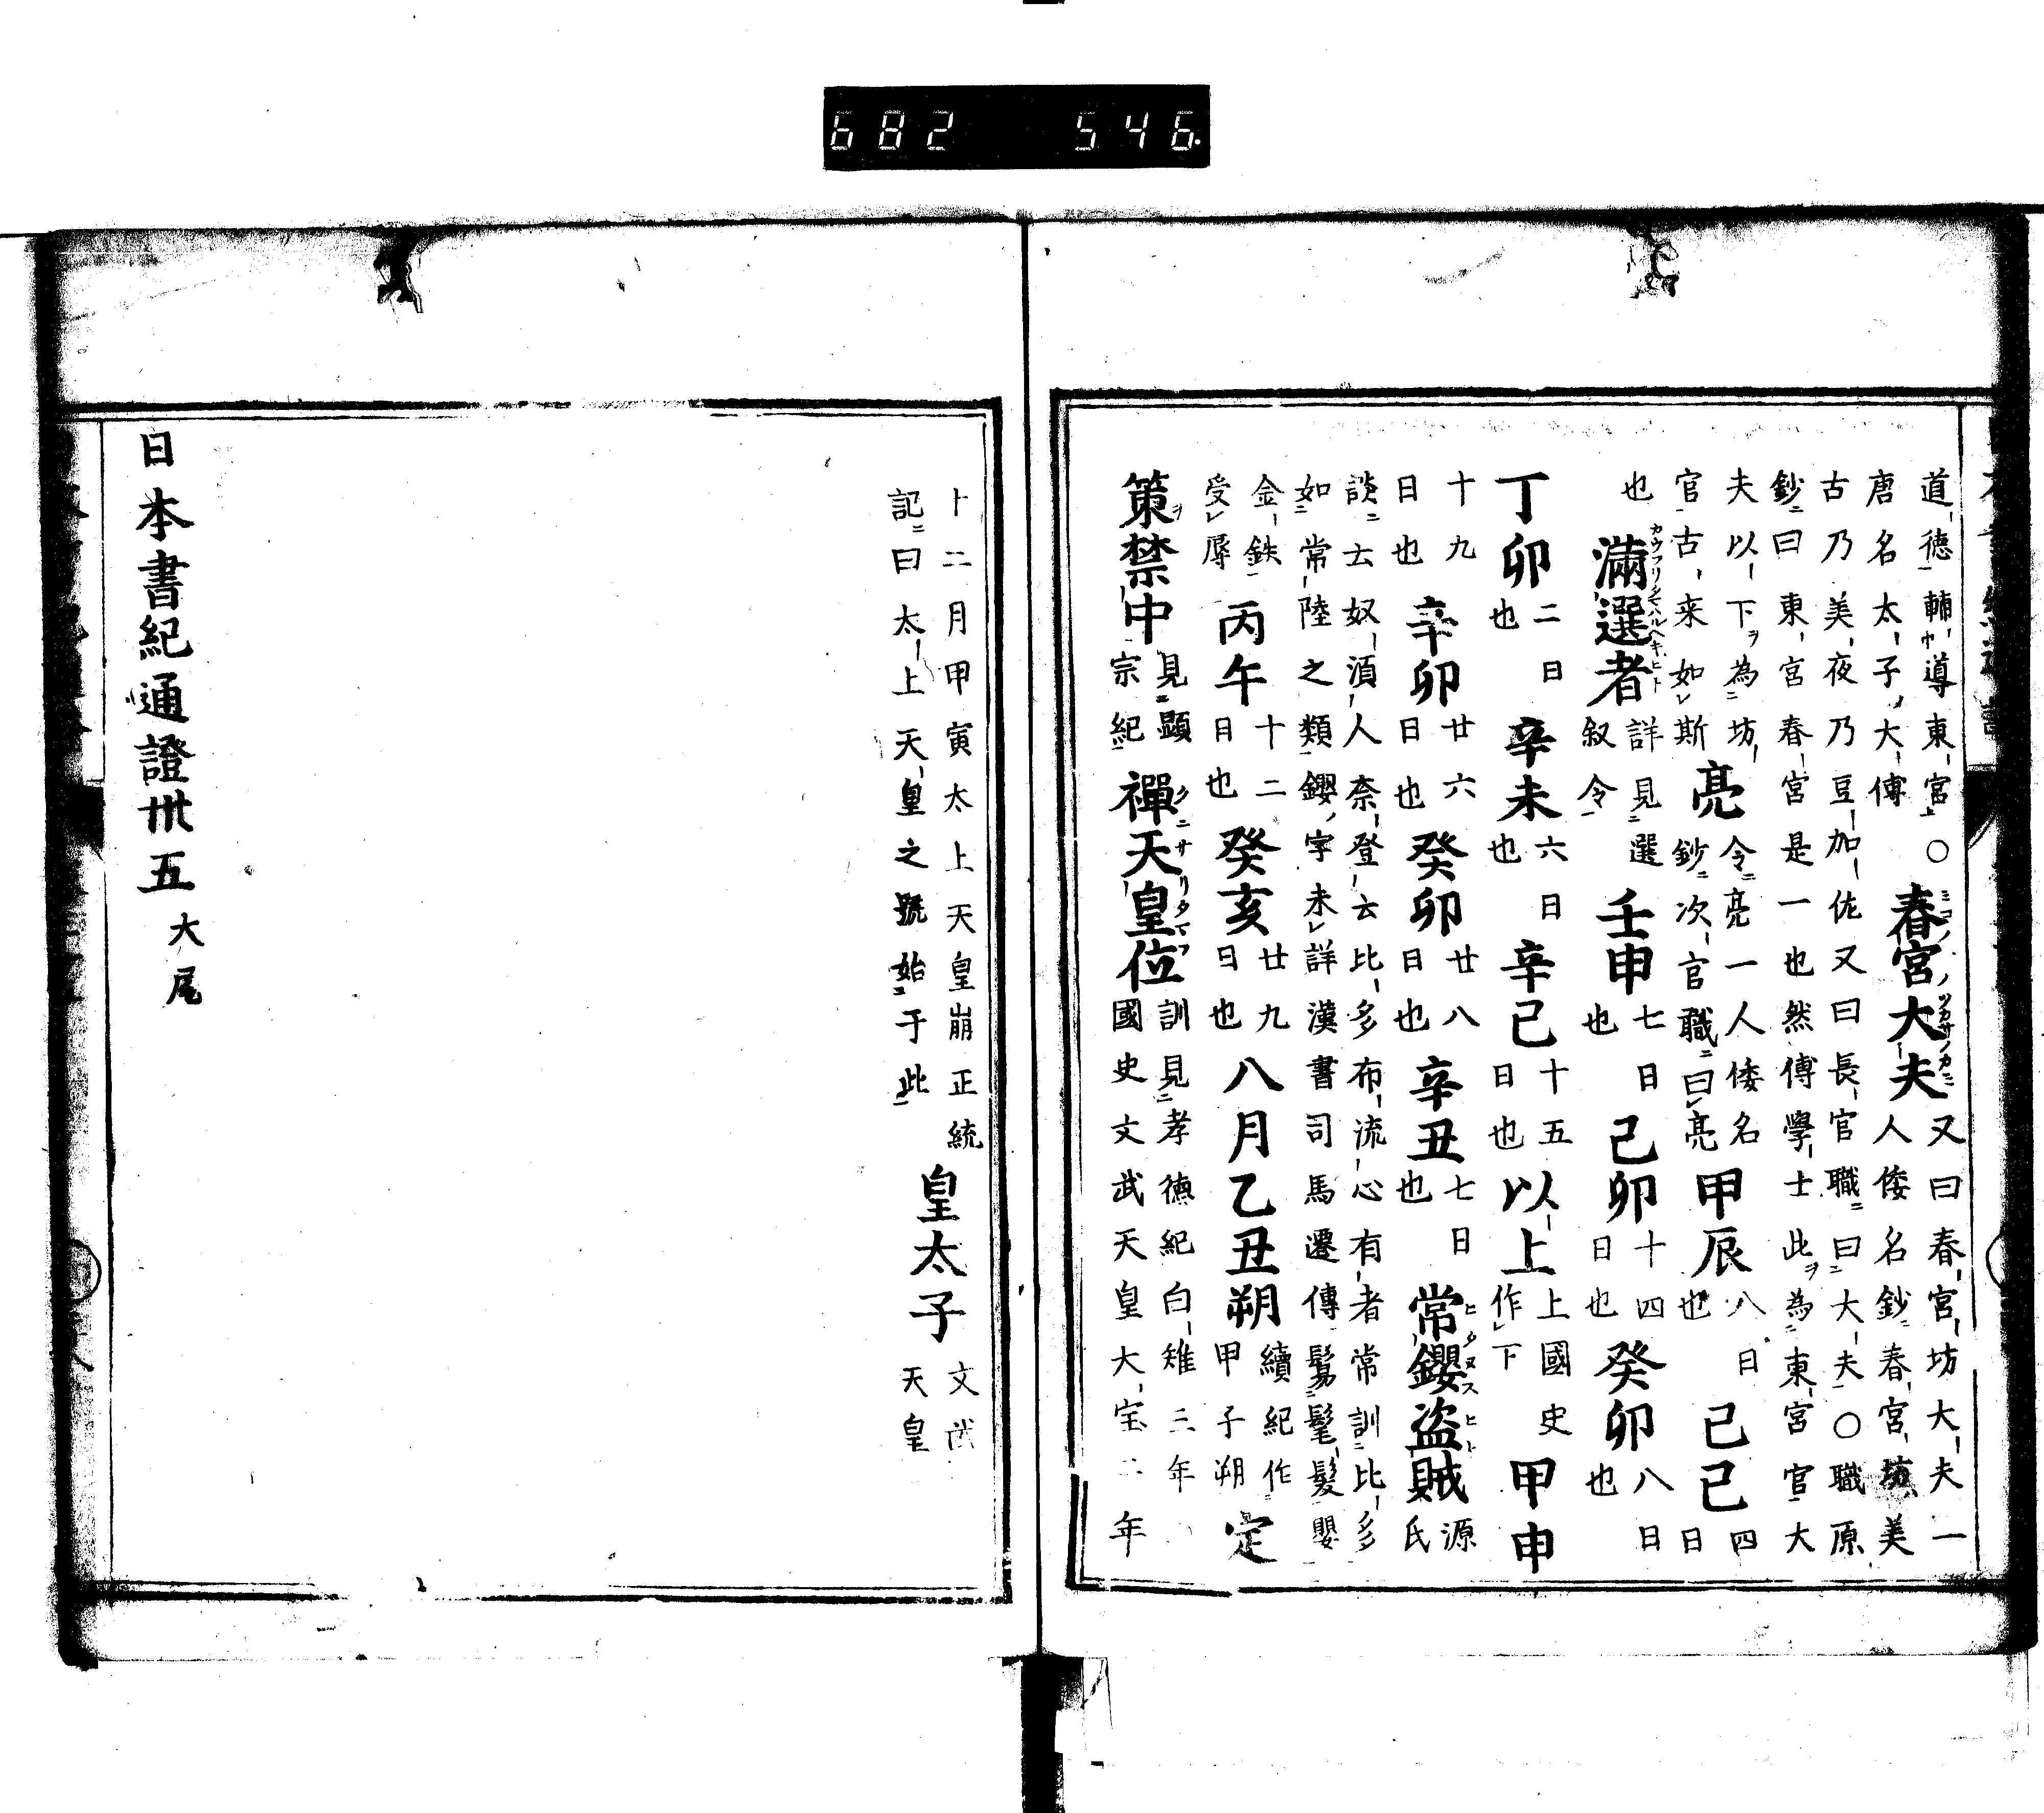 682 546
道德輔導東宮○春宮大夫又曰春宮坊大夫一
唐名太子大傅人倭名鈔春宮坊美
古乃美夜乃豆加佐又曰長官職曰大夫○職原
鈔曰東宮春宮是一也然傅學士此為東宮官大
夫以下為坊亮令亮一人倭名甲辰八日己巳四
官古来如斯鈔次官職曰亮也日
也滿選者詳見選壬申七日己卯十四癸卯八日
叙令也日也也
丁卯二日辛未六日辛巳十五以上上國史甲申
也也日也作下
十九辛卯廿六癸卯廿八辛丑七日常鏗盗賊源
日也日也日也也氏
談云奴湏人奈登云比多布流心有者常訓比多
如常陸之類鏗字未詳漢書司馬遷傳鬄髦髮嬰
金鉄丙午十二癸亥廿九八月乙丑朔續紀作定
受辱日也日也甲子朔
策禁中見顕禪天皇位訓見孝徳紀白雉三年
宗紀國史文武天皇大宝二年
十二月甲寅太上天皇崩正統皇太子文武
記曰太上天皇之號始于此天皇
日本書紀通證卅五大尾